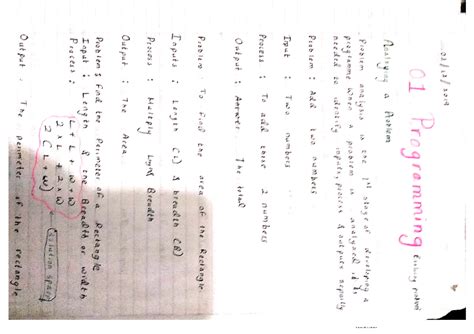 02/12/2019
01 Programming
Analysing a Problem
Problem analysis is the 1st stage of developing a
programme when a problem is analysed it is
needed to identify inputs, process & outputs
Problem : Add two numbers
Input : Two numbers
Process : To add these 2 numbers
Output : Answer The total
Problem : To find the area of the Rectangle
Inputs : Length (L) & breadth (B)
Process : Multiply L and Breadth
Output : The Area
Problem : find the Perimeter of a Rectangle
Input : Length & the Breadth or width
Process : L + L + W + W
2 x L + 2 x W
2 (L + W)
Solution space
Output : The perimeter of the rectangle